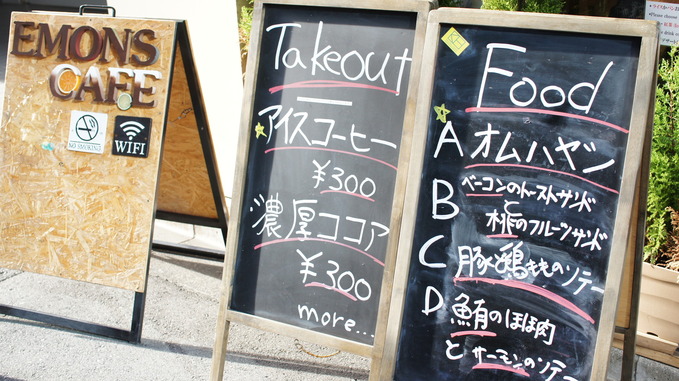 EMONS
CAFE
NO SMOKING
WIFI
Takeout
アイスコーヒー
¥300
濃厚ココア
¥300
more...
Food
A オムハヤシ
B ベーコンのトーストサンド
と 桃のフルーツサンド
C 豚と鶏もものソテー
D 鮪のほほ肉
と サーモンのソテー